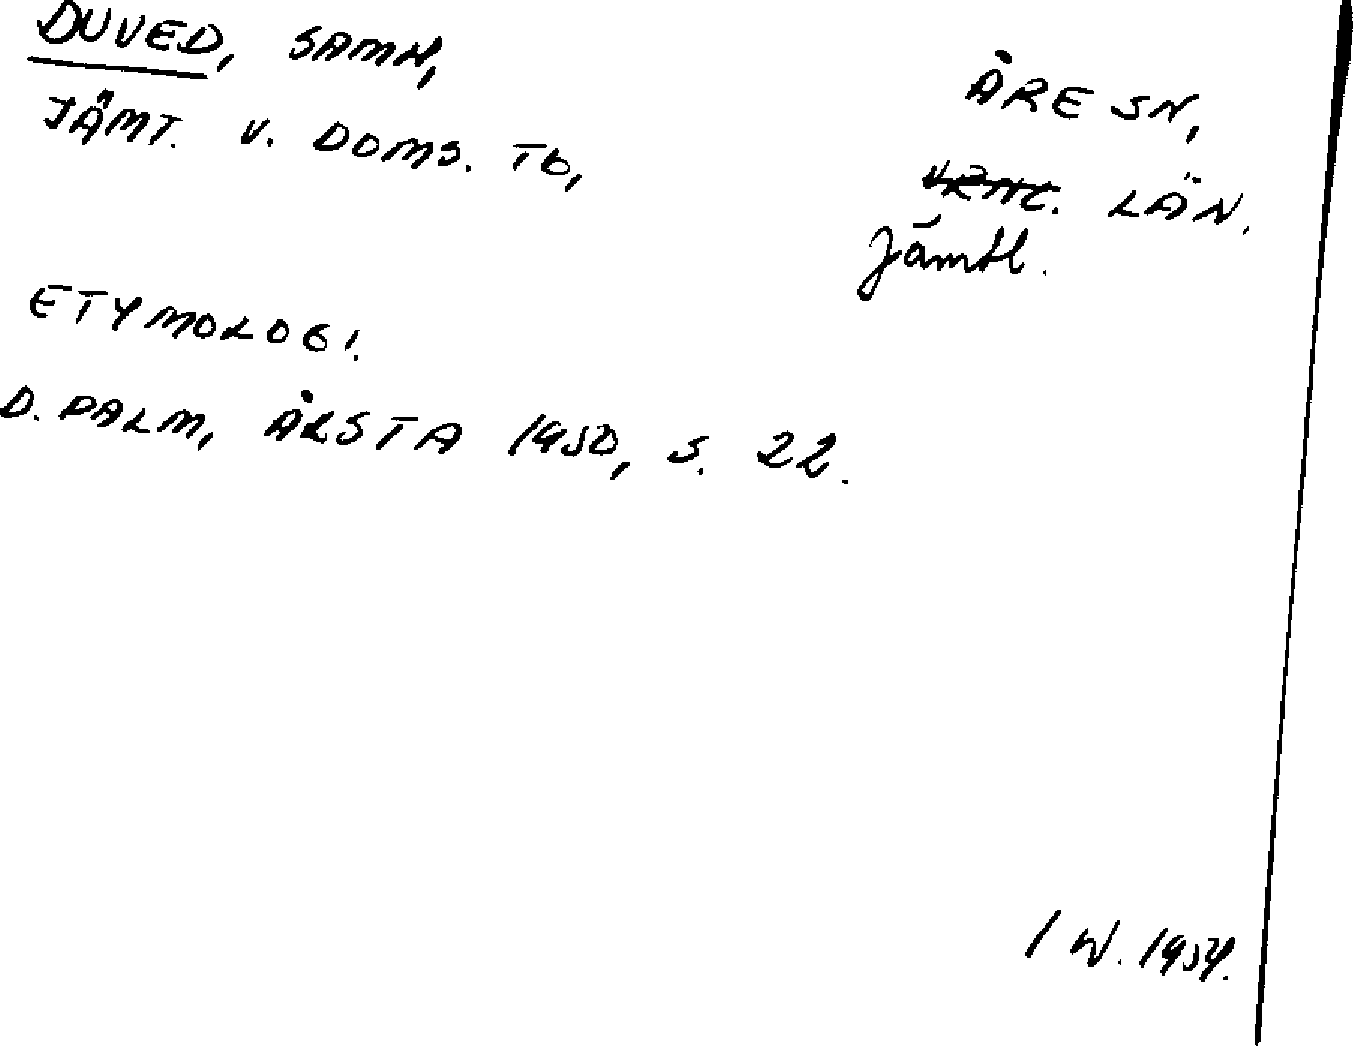 DUVED, SAMH,
JÄMT. V. DOMS. TB,
ÅRE SN,
VRML. LÄN.
Jämtl.
ETYMOLOGI.
D. PALM, ÅRSTA 1950, S. 22.
I W. 1954.